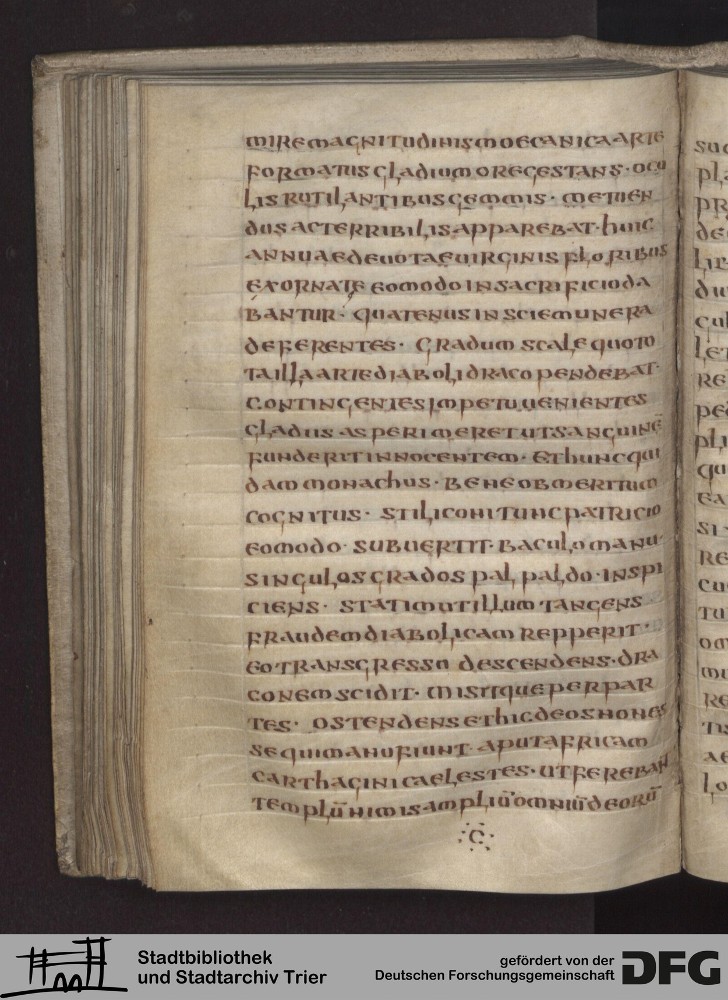 MIREMAGNITUDINISMOECANICAARTE
FORMATUSGLADIUMOREGESTANS · OCU
LISRUTILANTIBUSGEMMIS · METUEN
DUSACTERRIBILISAPPAREBAT · HUIC
ANNUAEDEUOTAEUIRGINISFLORIBUS
EXORNATE EOMODOINSACRIFICIODA
BANTUR · QUATENUSINSCIEMUNERA
DEFERENTES · GRADUM SCALEQUOTO
TAILLAARTEDIABOLIDRACOPENDEBAT ·
CONTINGENTESIMPETUUENIENTES
GLADIISASPERIMERETUTSANGUINĒ
FUNDERITINNOCENTEM · ETHUNCQUI
DAMMONACHUS · BENEOBMERITUM
COGNITUS · STILICONITUNCPATRICIO
EOMODO · SUBUERTIT · BACULOMANU ·
SINGULOSGRADOS PALPALDO · INSPI
CIENS · STATIMUTILLUM TANGENS
FRAUDEMDIABOLICAM REPPERIT ·
EOTRANSGRESSU DESCENDENS · DRA
CONEMSCIDIT · MISITQUEPERPAR
TES · OSTENDENSETHICDEOSNONES
SEQUIMANUFIUNT · APUTAFRICAM
CARTHAGINICAELESTES · UTFEREBANT
TEMPLŪNIMISAMPLIŪOMNIŪDEORŪ
C
SUO
DE
DU
CUL
LET
RE
QU
EA
SI
RE
TU
RE
AE
LO
Stadtbibliothek
und Stadtarchiv Trier
gefördert von der
Deutschen Forschungsgemeinschaft
DFG